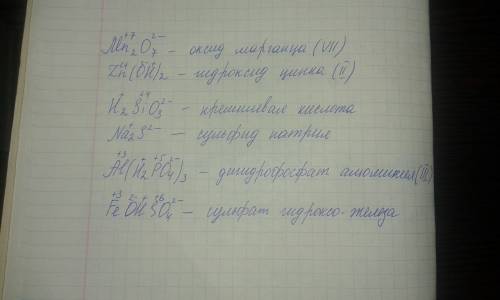 Mn₂⁺⁷O₇²⁻ – оксид марганца (VII)
Zn(OH)₂ – гидроксид цинка (II)
H₂⁺Si⁺⁴O₃²⁻ – кремниевая кислота
Na₂⁺S²⁻ – сульфид натрия
Al⁺³(H₂⁺P⁺⁵O₄²⁻)₃ – дигидрофосфат алюминия (III)
Fe⁺³O²⁻H⁺S⁺⁶O₄²⁻ – сульфат гидроксо-железа